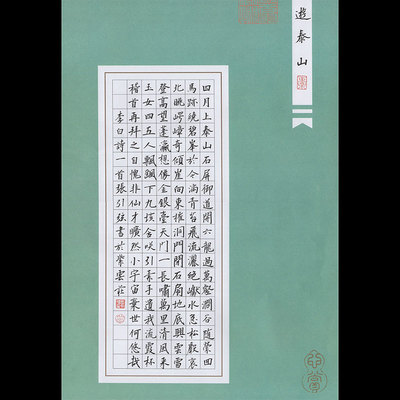 遊泰山
四月上泰山石屏御道開六龍過萬壑澗谷隨縈回
馬跡繞碧峯於今滿青苔飛流灑絕巘水急松聲哀
北眺崿嶂奇傾崖向東摧洞門閉石扇地底興雲雷
登高望蓬瀛想像金銀臺天門一長嘯萬里清風來
玉女四五人飄颻下九垓含咲引素手遺我流霞杯
稽首再拜之自愧非仙才曠然小宇宙棄世何悠哉
李白詩一首張引弦書於紫雲莊